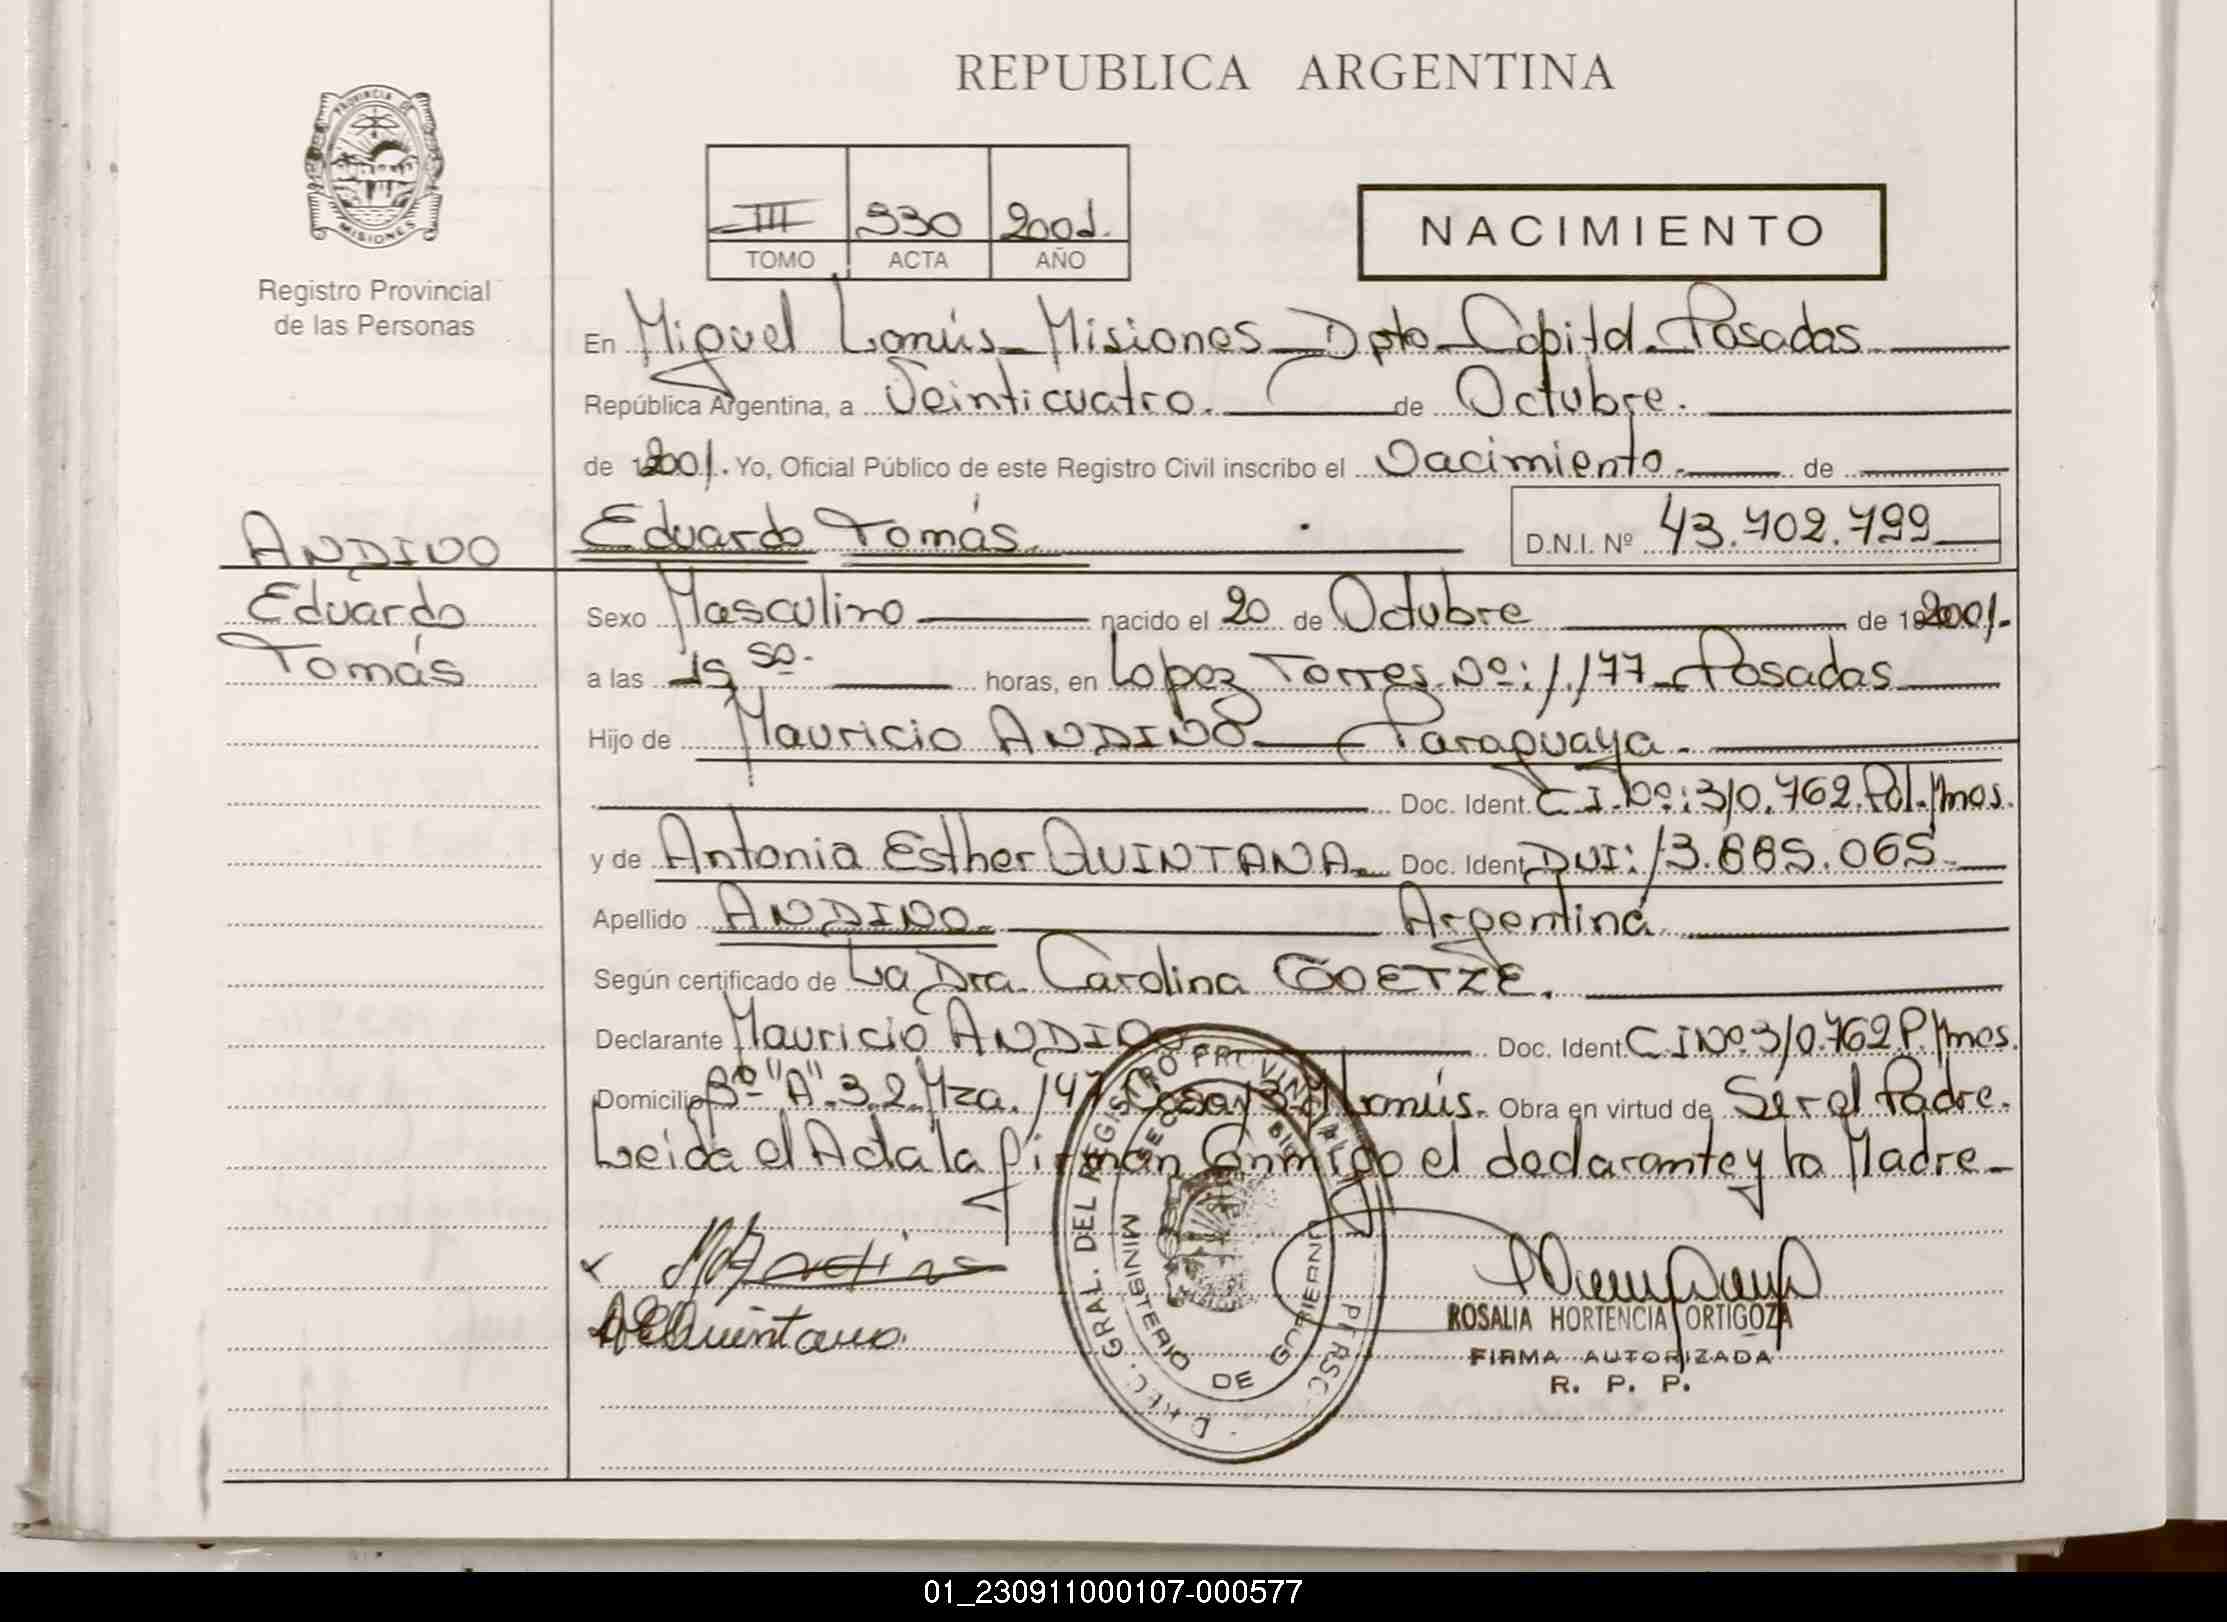 REPUBLICA ARGENTINA
PROVINCIA DE
MISIONES
Registro Provincial
de las Personas
III 930 2001.
TOMO ACTA AÑO
NACIMIENTO
En Miguel Lanús - Misiones - Dpto - Capital - Posadas
República Argentina, a Veinticuatro. de Octubre.
de 2001. Yo, Oficial Público de este Registro Civil inscribo el Nacimiento. de
ANDINO
Eduardo
Tomás
Eduardo Tomás. D.N.I. Nº 43.702.799
Sexo Masculino nacido el 20 de Octubre de 2001.
a las 15 50. horas, en Lopez Torres. Nº: 1.177 - Posadas
Hijo de Mauricio ANDINO - Paraguaya.
Doc. Ident. C.I. Nº: 310.762. Pol. Mnes.
y de Antonia Esther QUINTANA. Doc. Ident. DNI: 13.885.065
Apellido ANDINO. Argentina.
Según certificado de La Dra. Carolina GOETZE.
Declarante Mauricio ANDINO Doc. Ident C I Nº. 310.762 P. Mnes.
Domicilio Bº "A". 3.2. Mza. 147 Casa 13 - M. Lanús. Obra en virtud de Ser el Padre.
Leida el Acta la firman Conmigo el declarante y la Madre -
AEQuintana.
DIREC. GRAL. DEL REGISTRO PROVINCIAL
MINISTERIO DE GOBIERNO
ROSALIA HORTENCIA ORTIGOZA
FIRMA AUTORIZADA
R. P. P.
01_230911000107-000577